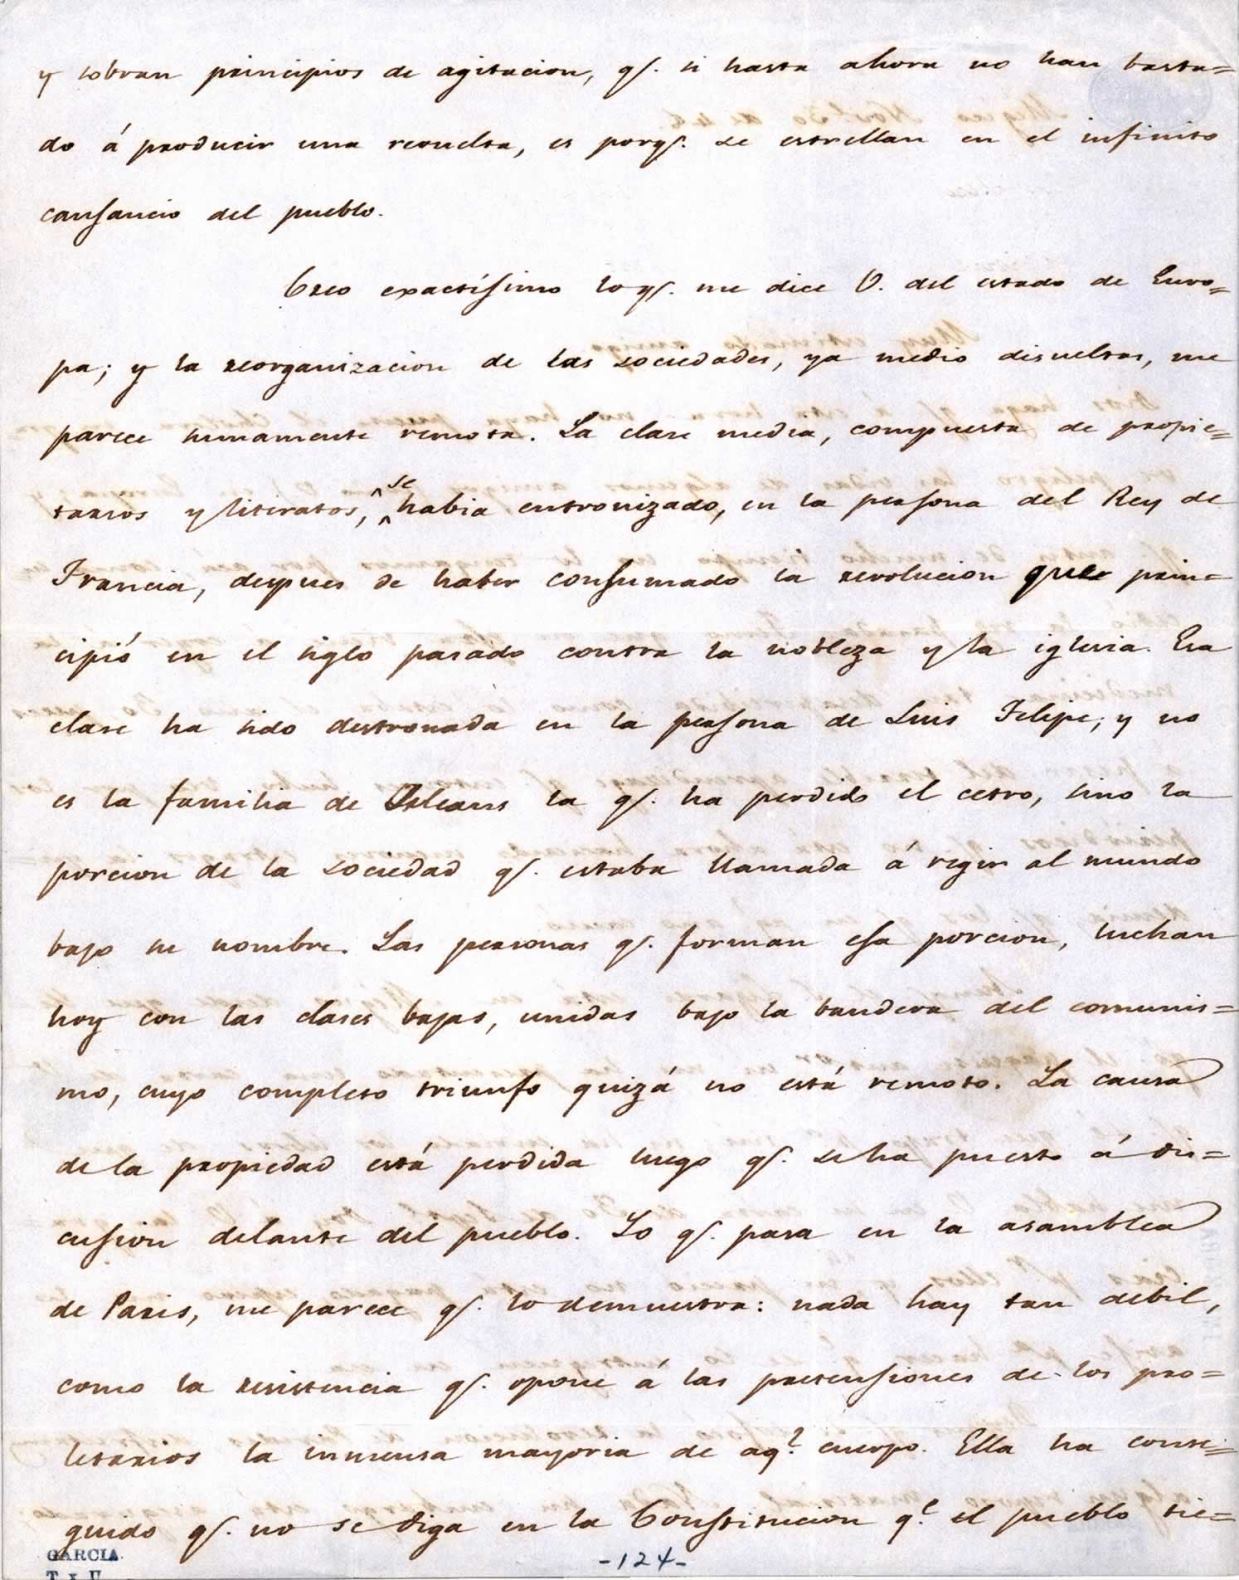 y sobran principios de agitacion, q͞. si hasta ahora no han basta=
do á producir una revuelta, es porq͞. se estrellan en el infinito
cansancio del pueblo.
Creo exactísimo lo q͞. me dice V. del estado de Euro=
pa; y la reorganizacion de las sociedades, ya medio disueltas, me
parece sumamente remota. La clase media, compuesta de propie=
tarios y literatos, se habia entronizado, en la persona del Rey de
Francia, despues de haber consumado la revolucion que prin=
cipió en el siglo pasado contra la nobleza y la iglesia. Esa
clase ha sido destronada en la persona de Luis Felipe; y no
es la familia de Orleans la q͞. ha perdido el cetro, sino la
porcion de la sociedad q͞. estaba llamada á regir al mundo
bajo su nombre. Las personas q͞. forman esa porcion, luchan
hoy con las clases bajas, unidas bajo la bandera del comunis=
mo, cuyo completo triunfo quizá no está remoto. La causa
de la propiedad está perdida luego q͞. se ha puesto á dis=
cusion delante del pueblo. Lo q͞. pasa en la asamblea
de Paris, me parece q͞. lo demuestra: nada hay tan debil,
como la resistencia q͞. opone á las pretensiones de los pro=
letarios la inmensa mayoria de aq.l cuerpo. Ella ha conse=
guido q͞. no se diga en la Constitucion q.e el pueblo tie=
GARCIA
-124-